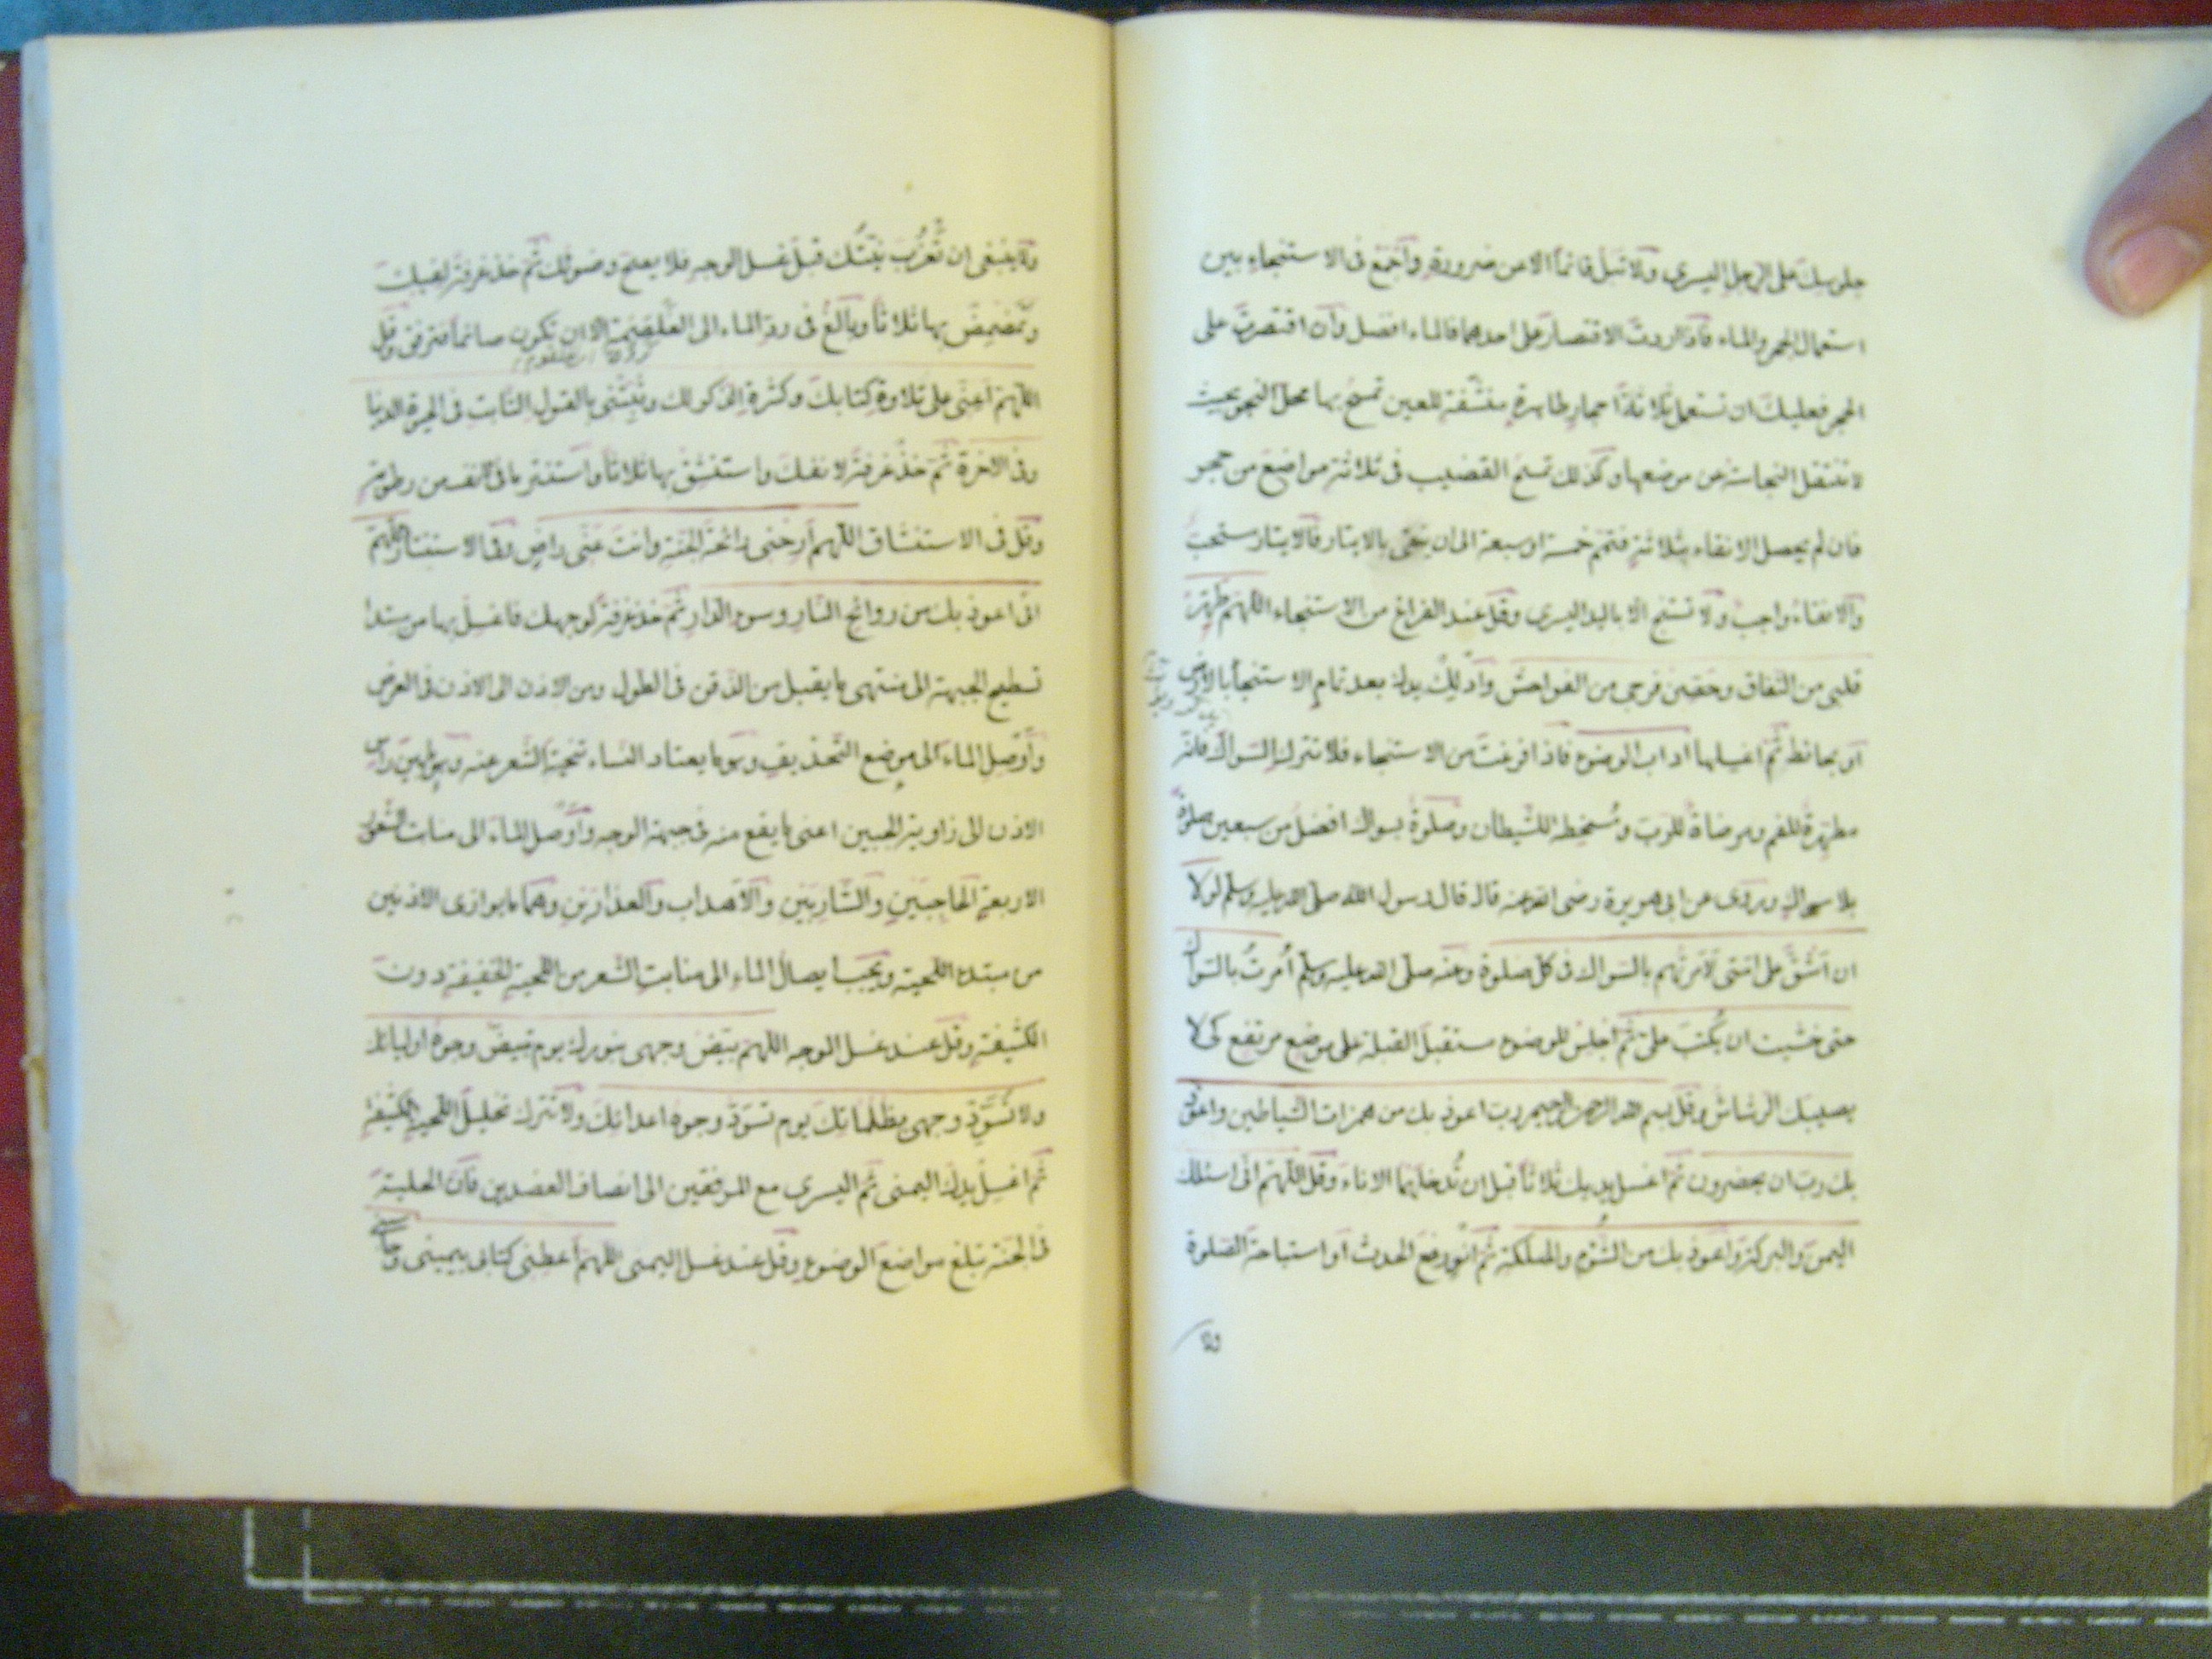 جلوسك على الرجل اليسرى ولا تبل قائماً الا من ضرورة واجمع فى الاستنجاء بين
استعمال الحجر والماء فاذا اردت الاقتصار على احدهما فالماء افضل وان اقتصرت على
الحجر فعليك ان تستعمل ثلاثة احجار طاهرة منشفة للعين تمسح بها محل النجو بحيث
لا تنتقل النجاسة عن موضعها وكذلك تمسح القضيب فى ثلاثة مواضع من حجر
فان لم يحصل الانقاء بثلاثة فتمم خمسة او سبعة الى ان ينقى بالايتار فالايتار مستحب
والانقاء واجب ولا تستنج الا باليد اليسرى وقل عند الفراغ من الاستنجاء اللهم طهر
قلبى من النفاق وحصن فرجى من الفواحش وادلك يدك بعد تمام الاستنجاء بالارض
او بحائط ثم اغسلها اداب الوضوء فاذا فرغت من الاستنجاء فلا تترك السواك فانه
مطهرة للفم ومرضاة للرب ومسخطة للشيطان وصلوة بسواك افضل من سبعين صلوة
بلا سواك وروى عن ابى هريرة رضى الله عنه قال قال رسول الله صلى الله عليه وسلم لولا
ان اشق على امتى لامرتهم بالسواك فى كل صلوة وعنه صلى الله عليه وسلم أمرت بالسواك
حتى خشيت ان يكتب على ثم اجلس للوضوء مستقبل القبلة على موضع مرتفع كى لا
يصيبك الرشاش وقل بسم الله الرحمن الرحيم رب اعوذ بك من همزات الشياطين واعوذ
بك رب ان يحضرون ثم اغسل يديك ثلاثا قبل ان تدخلهما الاناء وقل اللهم انى اسئلك
اليمن والبركة واعوذ بك من الشؤم والهلكة ثم انو رفع الحدث او استباحة الصلوة
ولا
ولا ينبغى ان تعزب نيتك قبل غسل الوجه فلا يصح وضوئك ثم خذ غرفة لفيك
وتمضمض بها ثلاثا وبالغ فى رد الماء الى الغلصمة الا ان تكون صائما فترفق وقل
اللهم اعنى على تلاوة كتابك وكثرة الذكر لك وثبتنى بالقول الثابت فى الحيوة الدنيا
وفى الاخرة ثم خذ غرفة لانفك واستنشق بها ثلاثا واستنثر ما فى الانف من رطوبة
وقل فى الاستنشاق اللهم ارحنى رائحة الجنة وانت عنى راض وفى الاستنثار اللهم
انى اعوذ بك من روائح النار وسوء الدار ثم خذ غرفة لوجهك فاغسل بها من مبتدا
تسطيح الجبهة الى منتهى ما يقبل من الذقن فى الطول ومن الاذن الى الاذن فى العرض
واوصل الماء الى موضع التحذيف وهو ما يعتاد النساء تنحية الشعر عنه وهو ما بين راس
الاذن الى زاوية الجبين اعنى ما يقع منه فى جبهة الوجه واوصل الماء الى منابت الشعور
الاربعة الحاجبين والشاربين والاهداب والعذارين وهما ما يوازى الاذنين
من مبتدء اللحية ويجب ايصال الماء الى منابت الشعر من اللحية الخفيفة دون
الكثيفة وقل عند غسل الوجه اللهم بيض وجهى بنورك يوم تبيض وجوه اوليائك
ولا تسود وجهى بظلماتك يوم تسود وجوه اعدائك ولا تترك تخليل اللحية الكثيفة
ثم اغسل يدك اليمنى ثم اليسرى مع المرفقين الى انصاف العضدين فان الحلية
فى الجنة تبلغ مواضع الوضوء وقل عند غسل اليمنى اللهم اعطنى كتابى بيمينى وحاسبنى